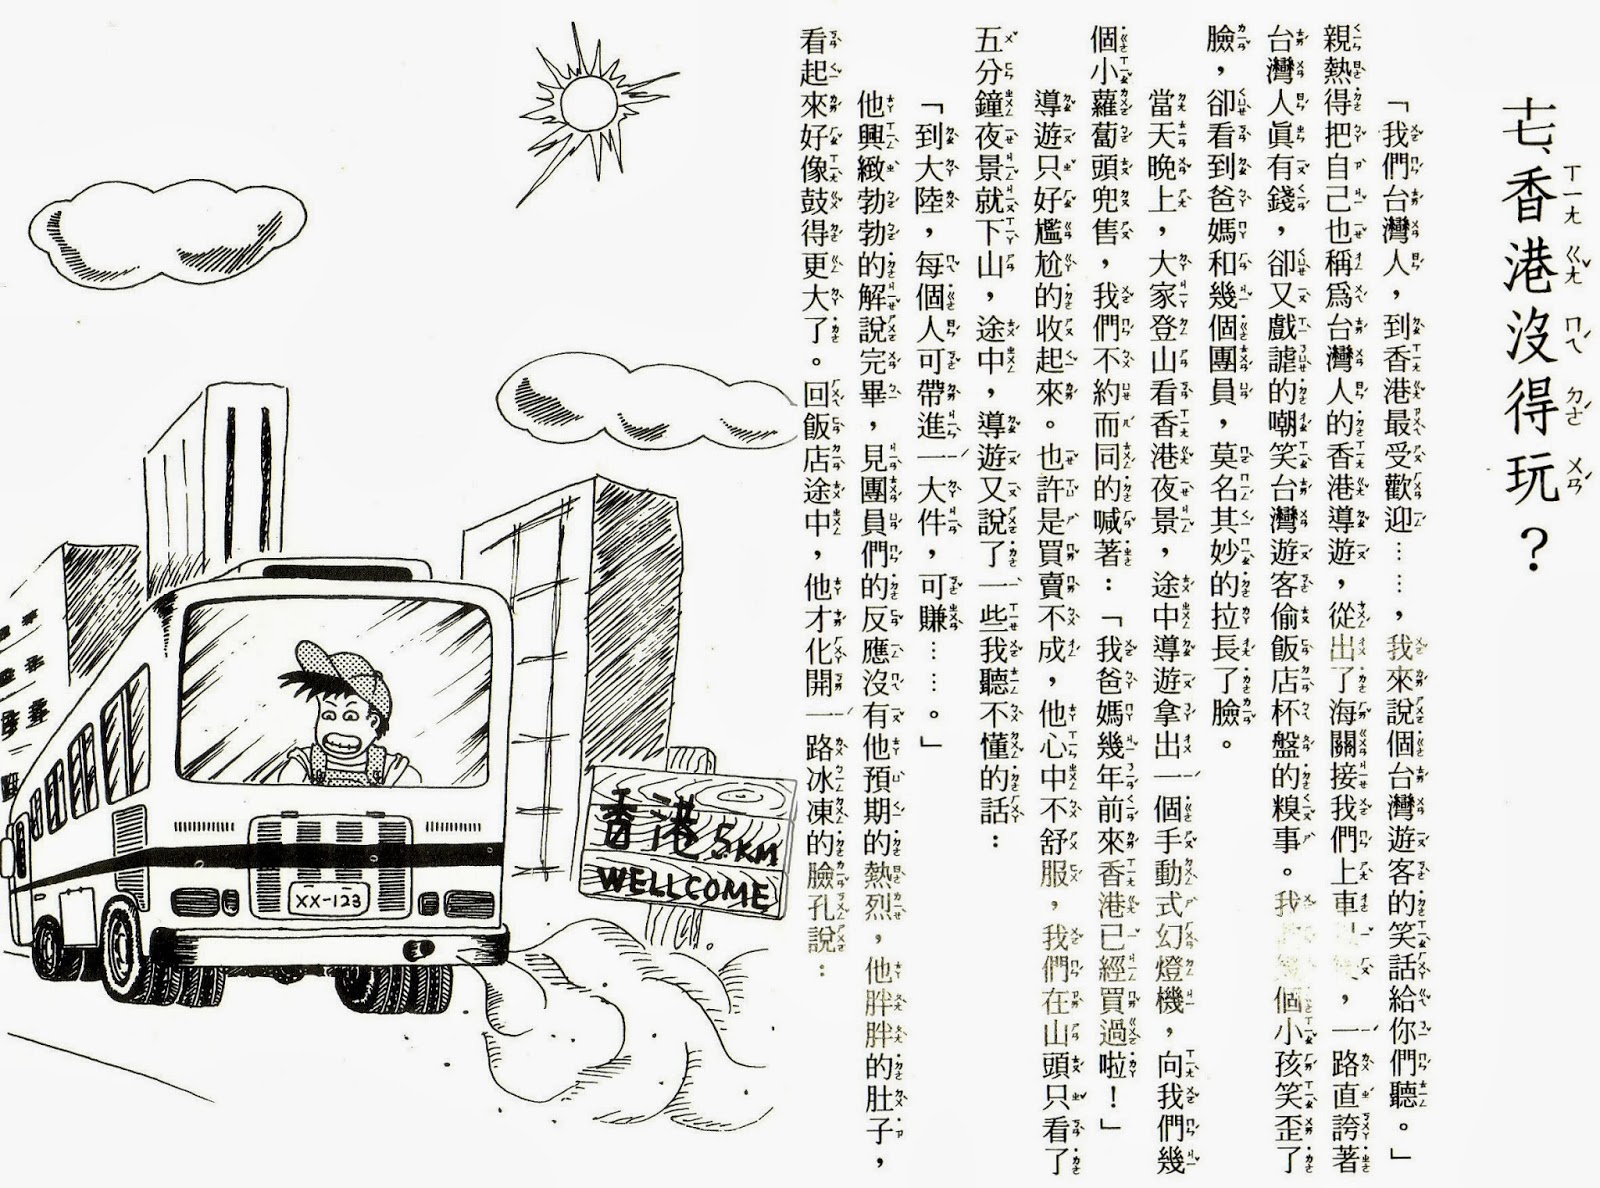 十七、香港沒得玩？
「我們台灣人，到香港最受歡迎……，我來說個台灣遊客的笑話給你們聽。」
親熱得把自己也稱為台灣人的香港導遊，從出了海關接我們上車，一路直誇著
台灣人眞有錢，卻又戲謔的嘲笑台灣遊客偷飯店杯盤的糗事。我個小孩笑歪了
臉，卻看到爸媽和幾個團員，莫名其妙的拉長了臉。
當天晚上，大家登山看香港夜景，途中導遊拿出一個手動式幻燈機，向我們幾
個小蘿蔔頭兜售，我們不約而同的喊著：「我爸媽幾年前來香港已經買過啦！」
導遊只好尷尬的收起來。也許是買賣不成，他心中不舒服，我們在山頭只看了
五分鐘夜景就下山，途中，導遊又說了一些我聽不懂的話：
「到大陸，每個人可帶進一大件，可賺……。」
他興緻勃勃的解說完畢，見團員們的反應沒有他預期的熱烈，他胖胖的肚子，
看起來好像鼓得更大了。回飯店途中，他才化開一路冰凍的臉孔說：
香港 5KM
WELLCOME
XX-123